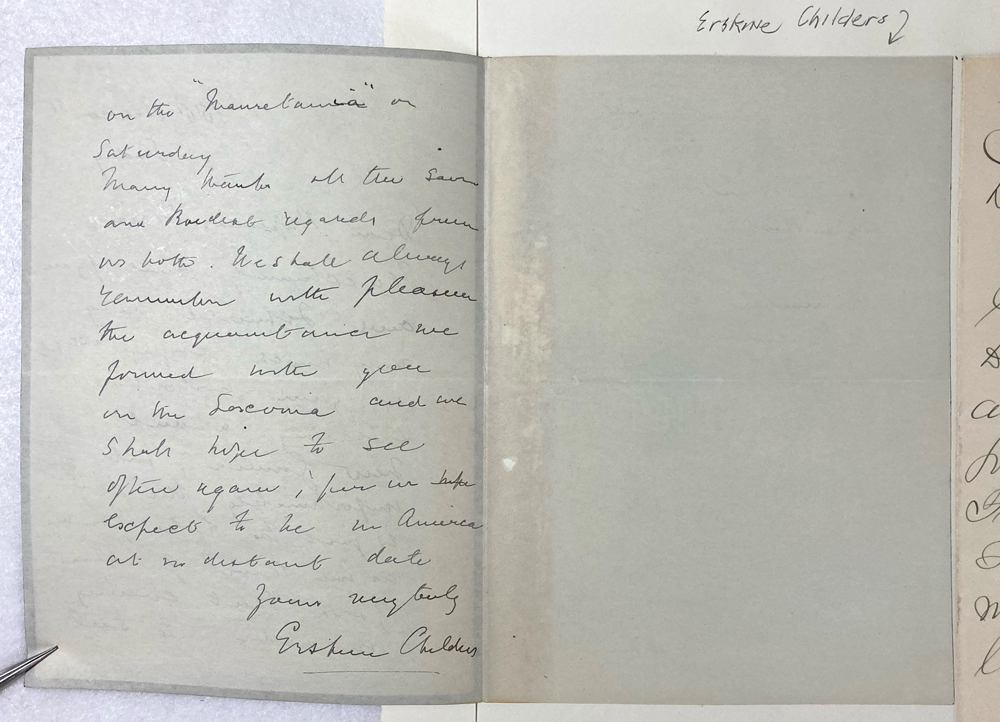 Erskine Childers
on the "Mauretania" on
Saturday
Many thanks all the same
and kindest regards from
us both. We shall always
remember with pleasure
the acquaintance we
formed with you
on the Laconia and we
shall hope to see
often again, for we hope
expect to be in America
at no distant date
Yours very truly
Erskine Childers